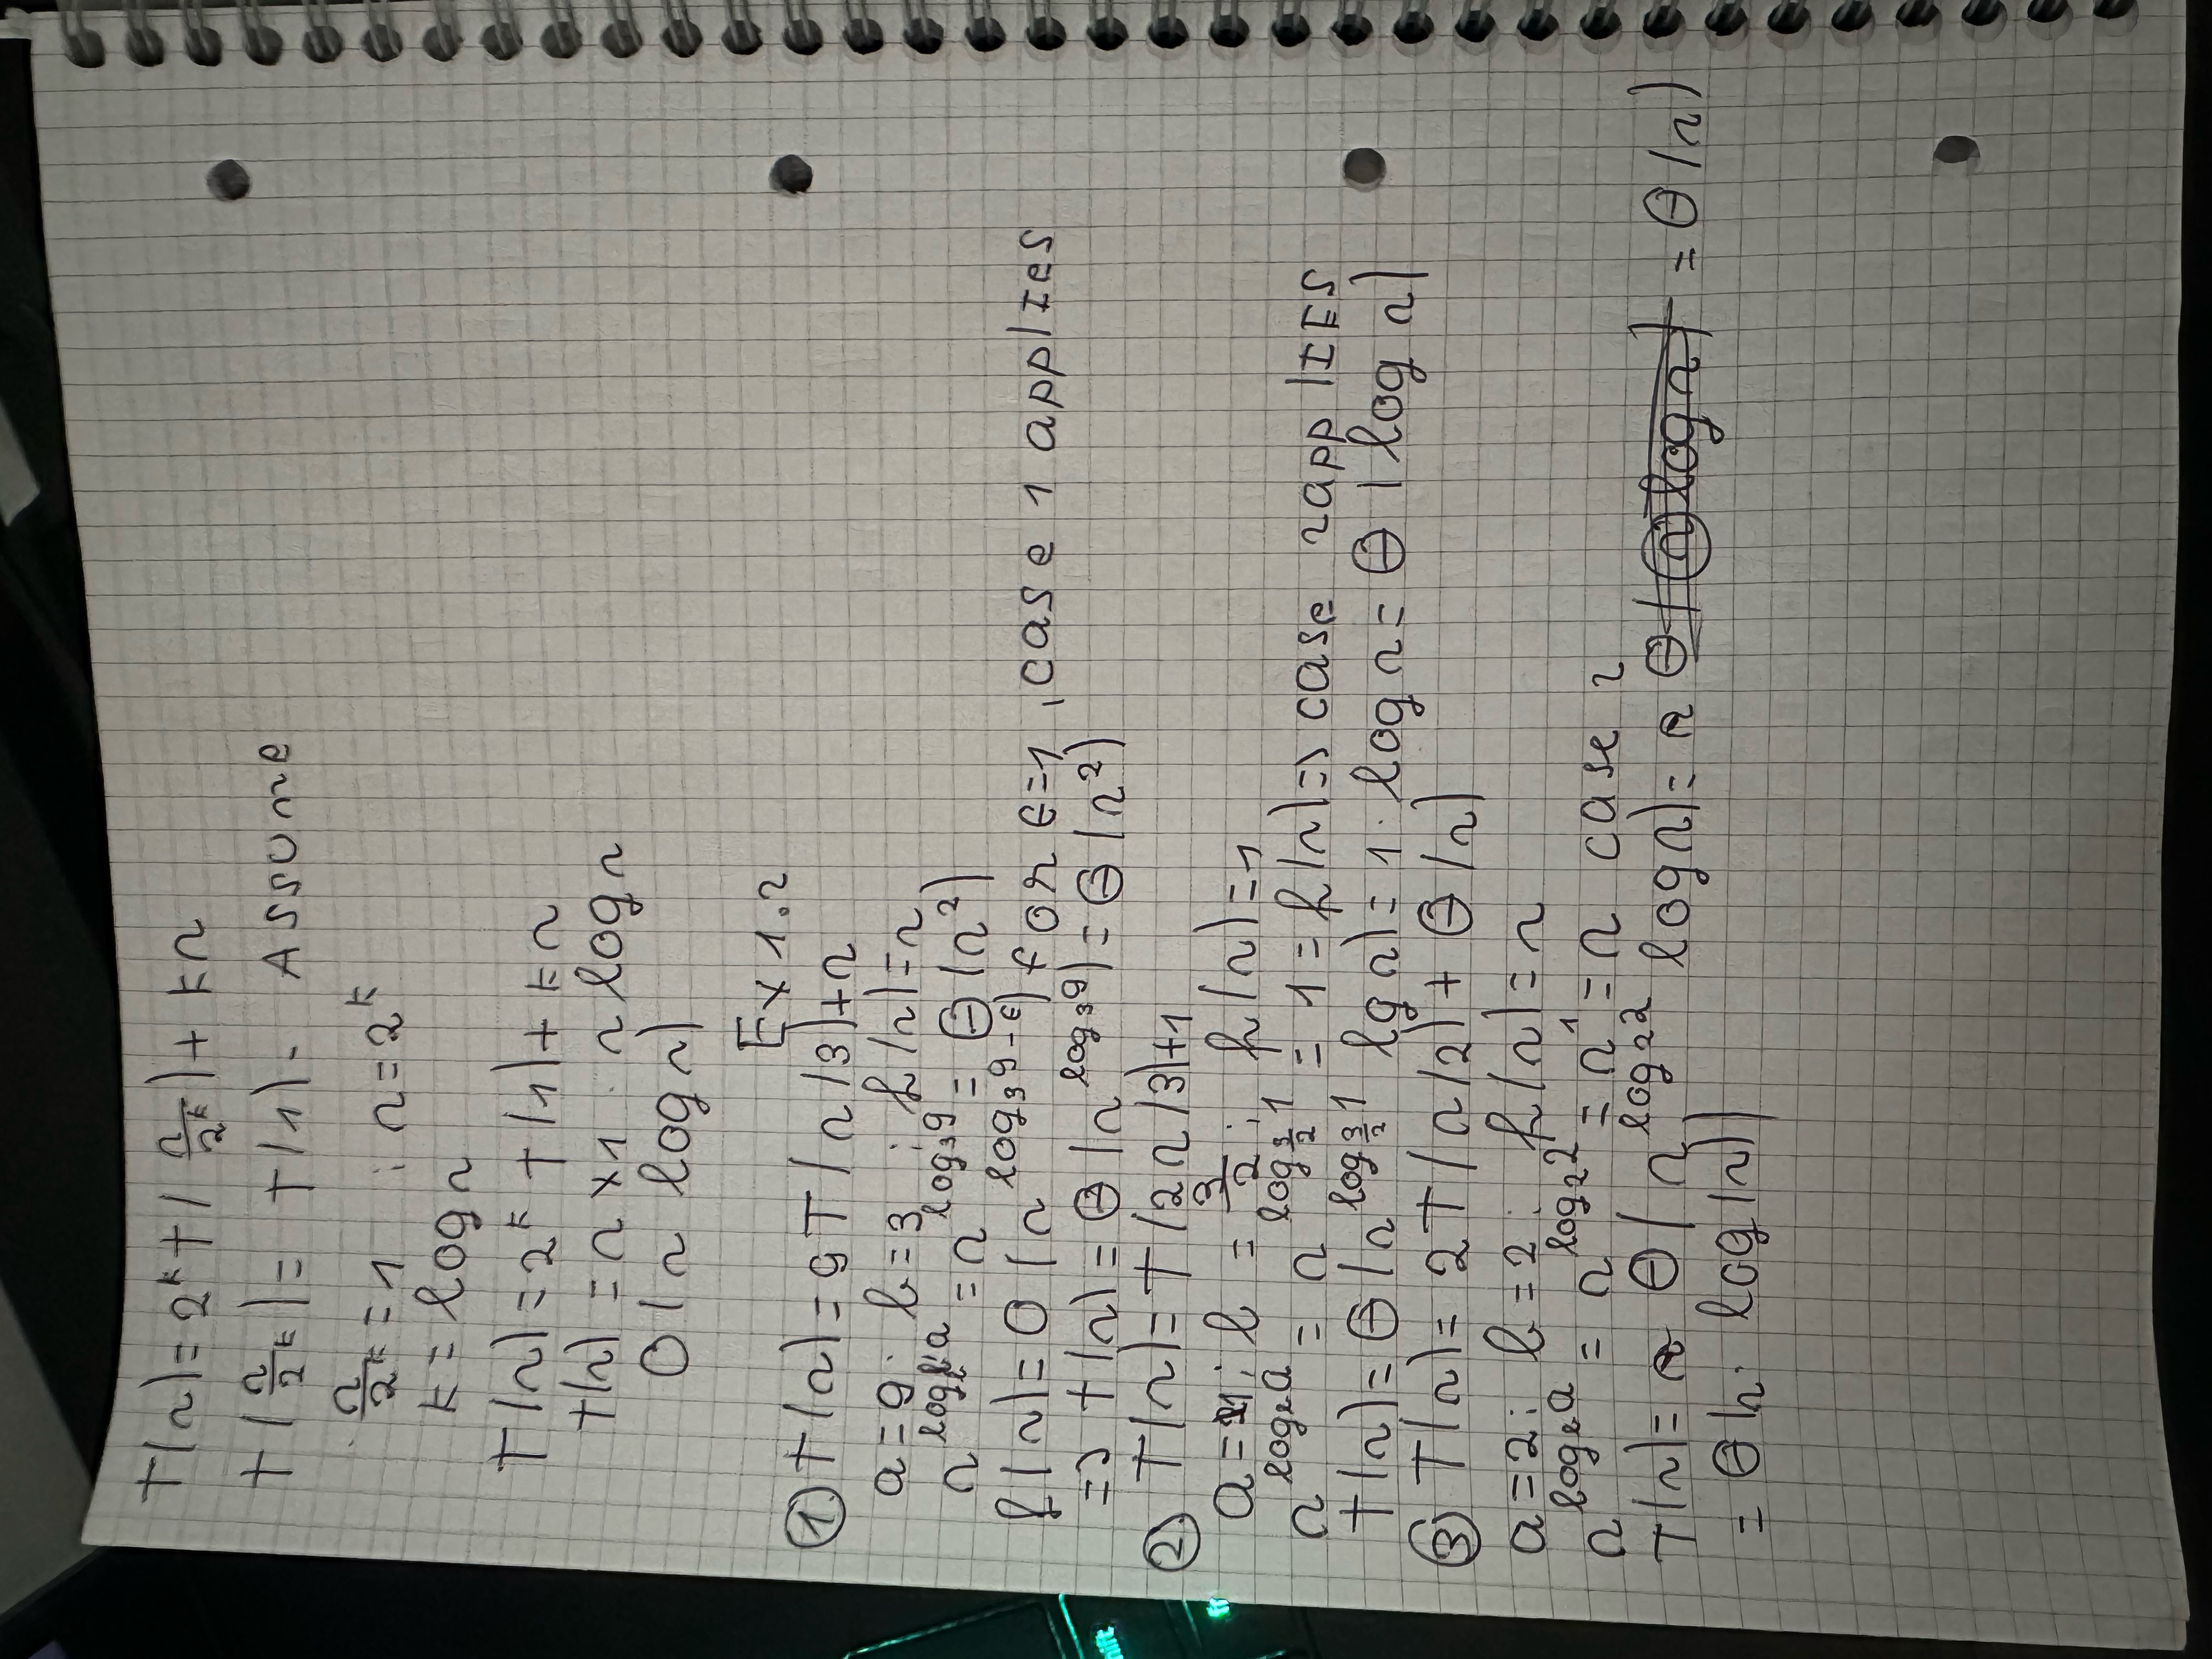 T(n) = 2^k T(n/2^k) + kn
T(n/2^k) = T(1) - Assume
n/2^k = 1 ; n = 2^k
k = log n
T(n) = 2^k T(1) + kn
T(n) = n × 1 · n log n
O(n log n)
Ex 1.2
1. T(n) = 9T(n/3) + n
a = 9; b = 3 ; f(n) = n
n^log_b a = n^log_3 9 = Θ(n^2)
f(n) = O(n^log_3 9-ϵ) for ϵ=1, case 1 applies
=> T(n) = Θ(n^log_3 9) = Θ(n^2)
2. T(n) = T(2n/3) + 1
a = 1; b = 3/2; f(n) = 1
n^log_b a = n^log_3/2 1 = 1 = f(n) => case 2 applies
T(n) = Θ(n^log_3/2 1 lg n) = 1 · log n = Θ(log n)
3. T(n) = 2T(n/2) + Θ(n)
a = 2; b = 2; f(n) = n
n^log_b a = n^log_2 2 = n^1 = n case 2
T(n) = Θ(n^log_2 2 log n) = Θ(n log n) = Θ(n)
= Θ(n · log(n))